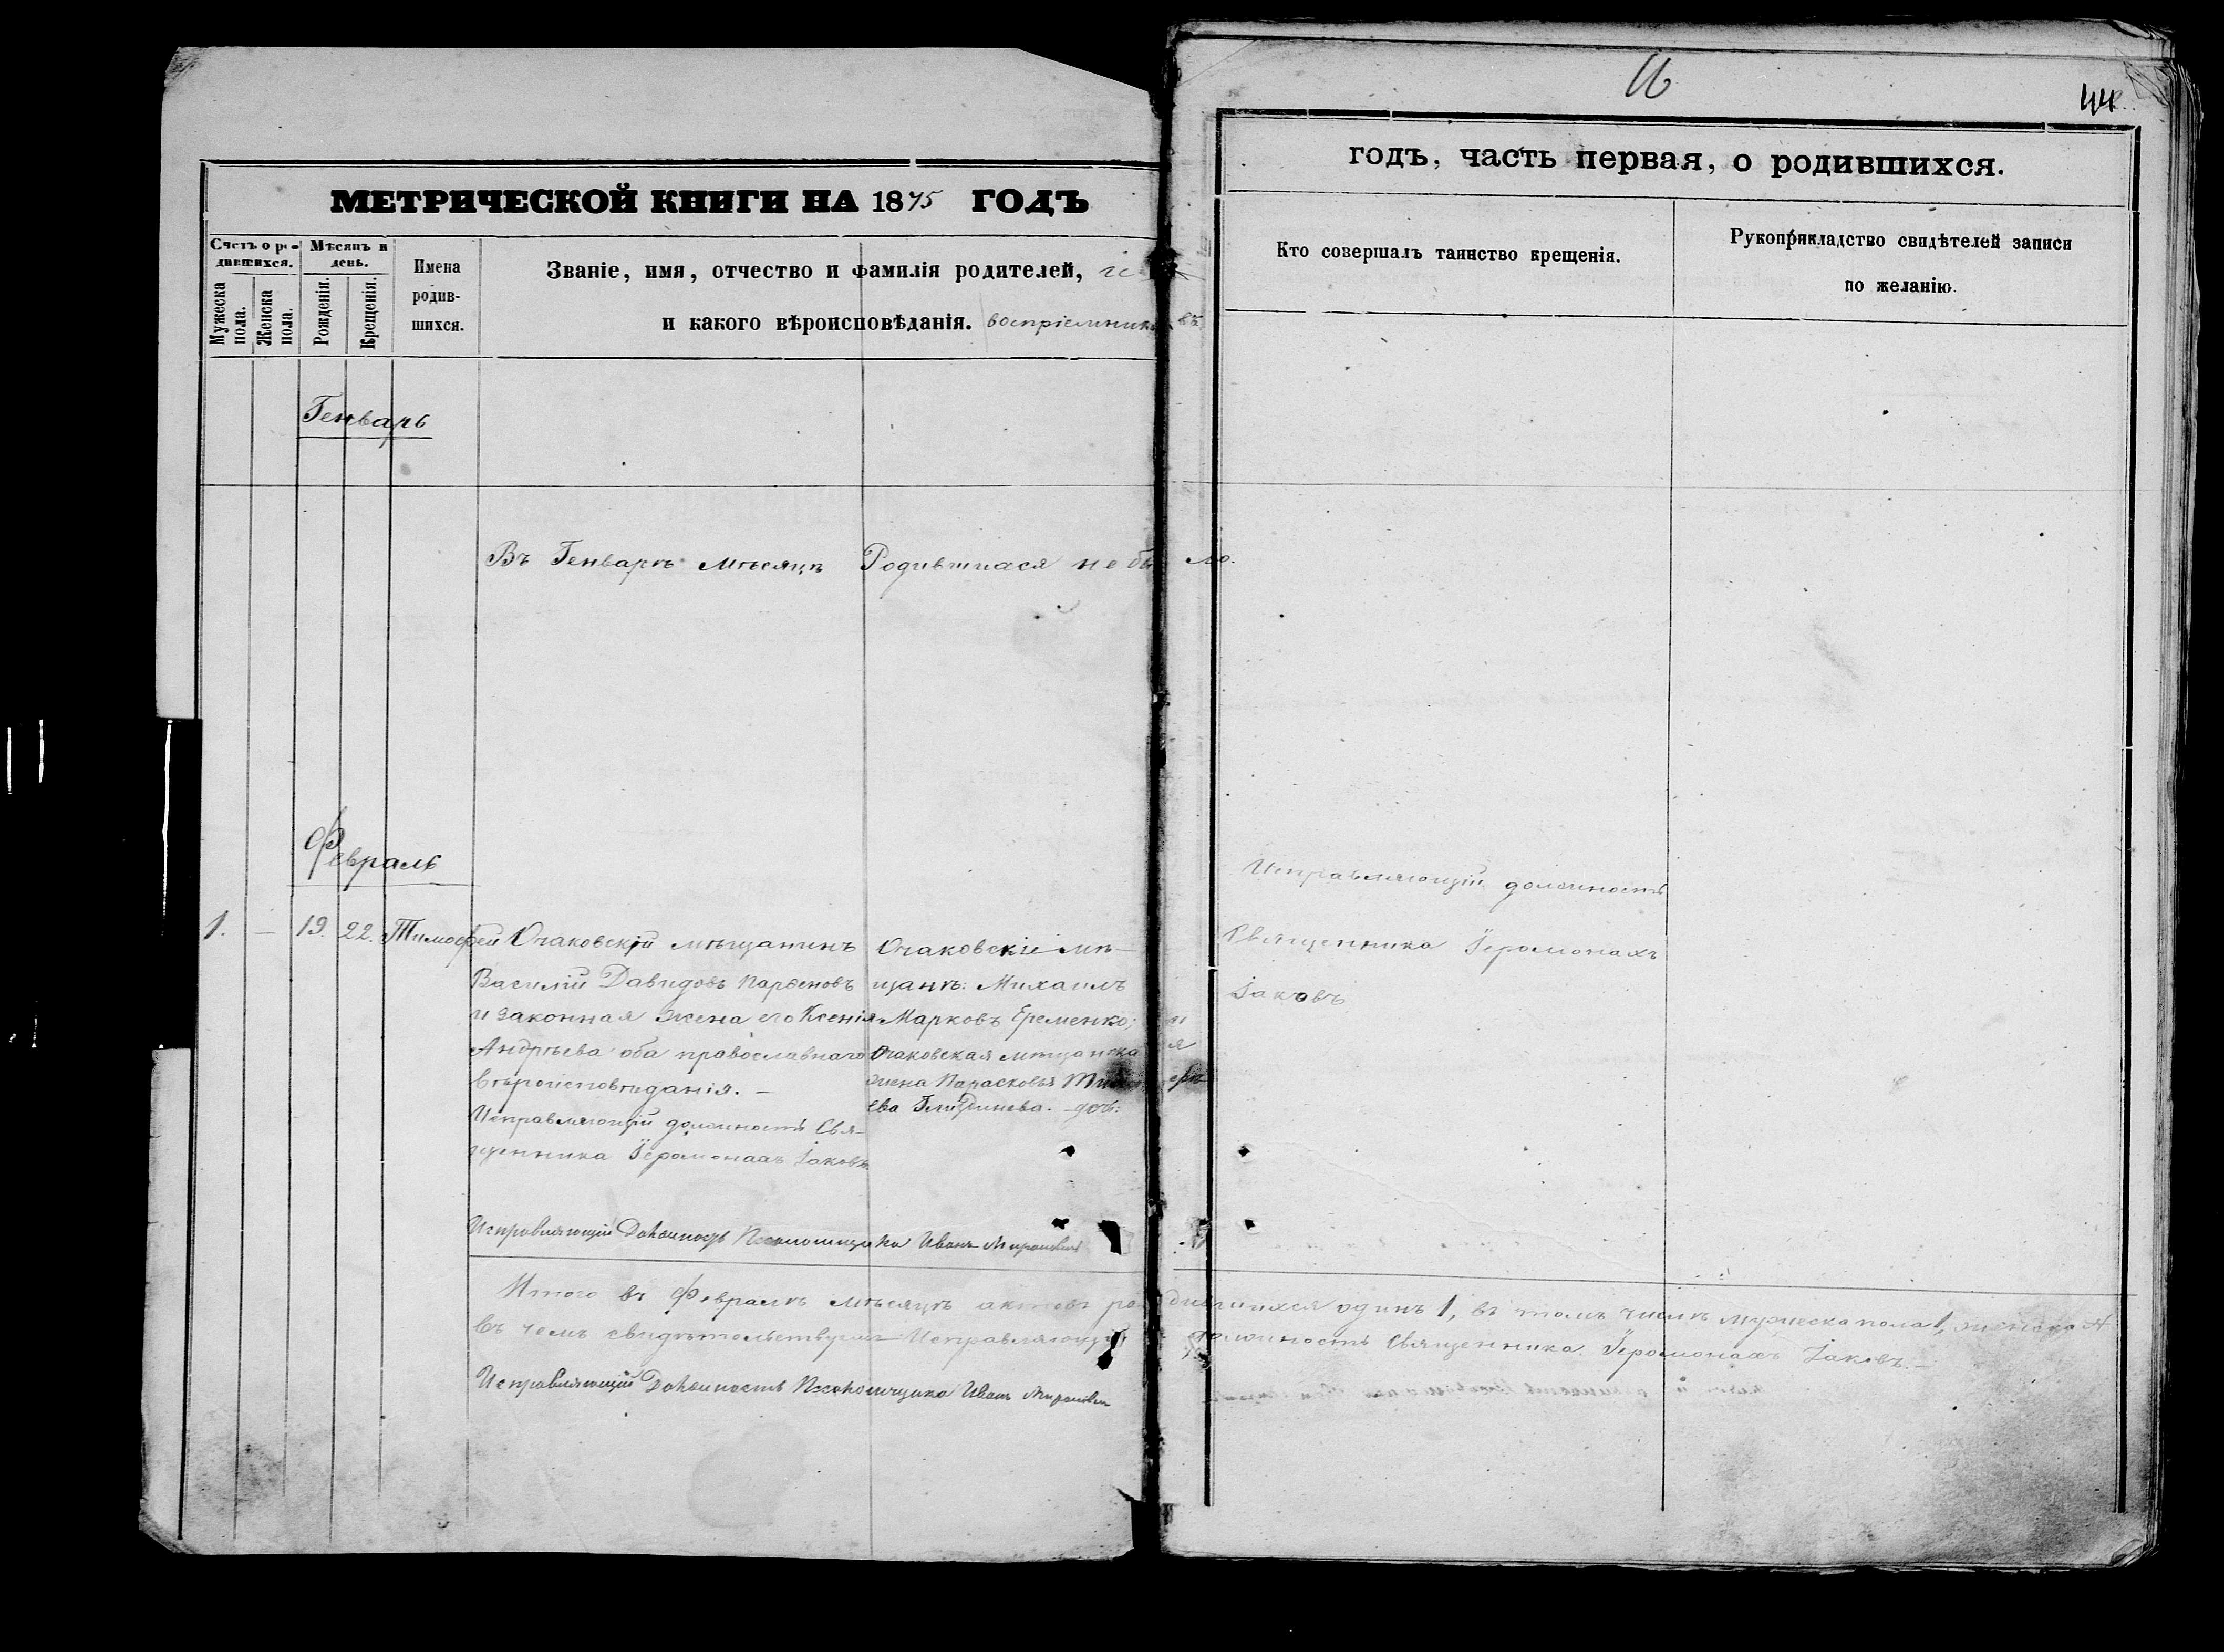 16
44
МЕТРИЧЕСКОЙ КНИГИ НА 1875 ГОДЪ
годъ, часть первая, о родившихся.
Счетъ о родившихся.
Мужеска пола.
Женска пола.
Мѣсяцъ и день.
Рожденія.
Крещенія.
Имена родив-
шихся.
Званіе, имя, отчество и фамилія родителей, и
и какого вѣроисповѣданія. воспріемниковъ
Кто совершалъ таинство крещенія.
Рукоприкладство свидѣтелей записи
по желанію.
Генварь
Въ Генварѣ мѣсяцѣ Родившихся не было.
Февраль
1. — 19. 22. Тимофей
Очаковскій мѣщанинъ
Василій Давидовъ Парфеновъ
и законная жена его Ксенія
Андрѣева оба православнаго
вѣроисповѣданія. —
Исправляющій должность Свя-
щенника Іеромонахъ Іаковъ.
Очаковскіе мѣ-
щане: Михаилъ
Марковъ Еременко; и
Очаковская мѣщанская
жена Парасковья Тимофѣ
ева дочь.
Исправляющій должность
Священника Іеромонахъ
Іаковъ
Исправляющій Должность Псаломщика Иванъ
Итого въ Февралѣ мѣсяцѣ актовъ родившихся одинъ 1, въ томъ числѣ мужеска пола 1, женска
въ чемъ свидѣтельствуетъ Исправляющій должность Священника Іеромонахъ Іаковъ. —
Исправляющій Должность Псаломщика Иванъ